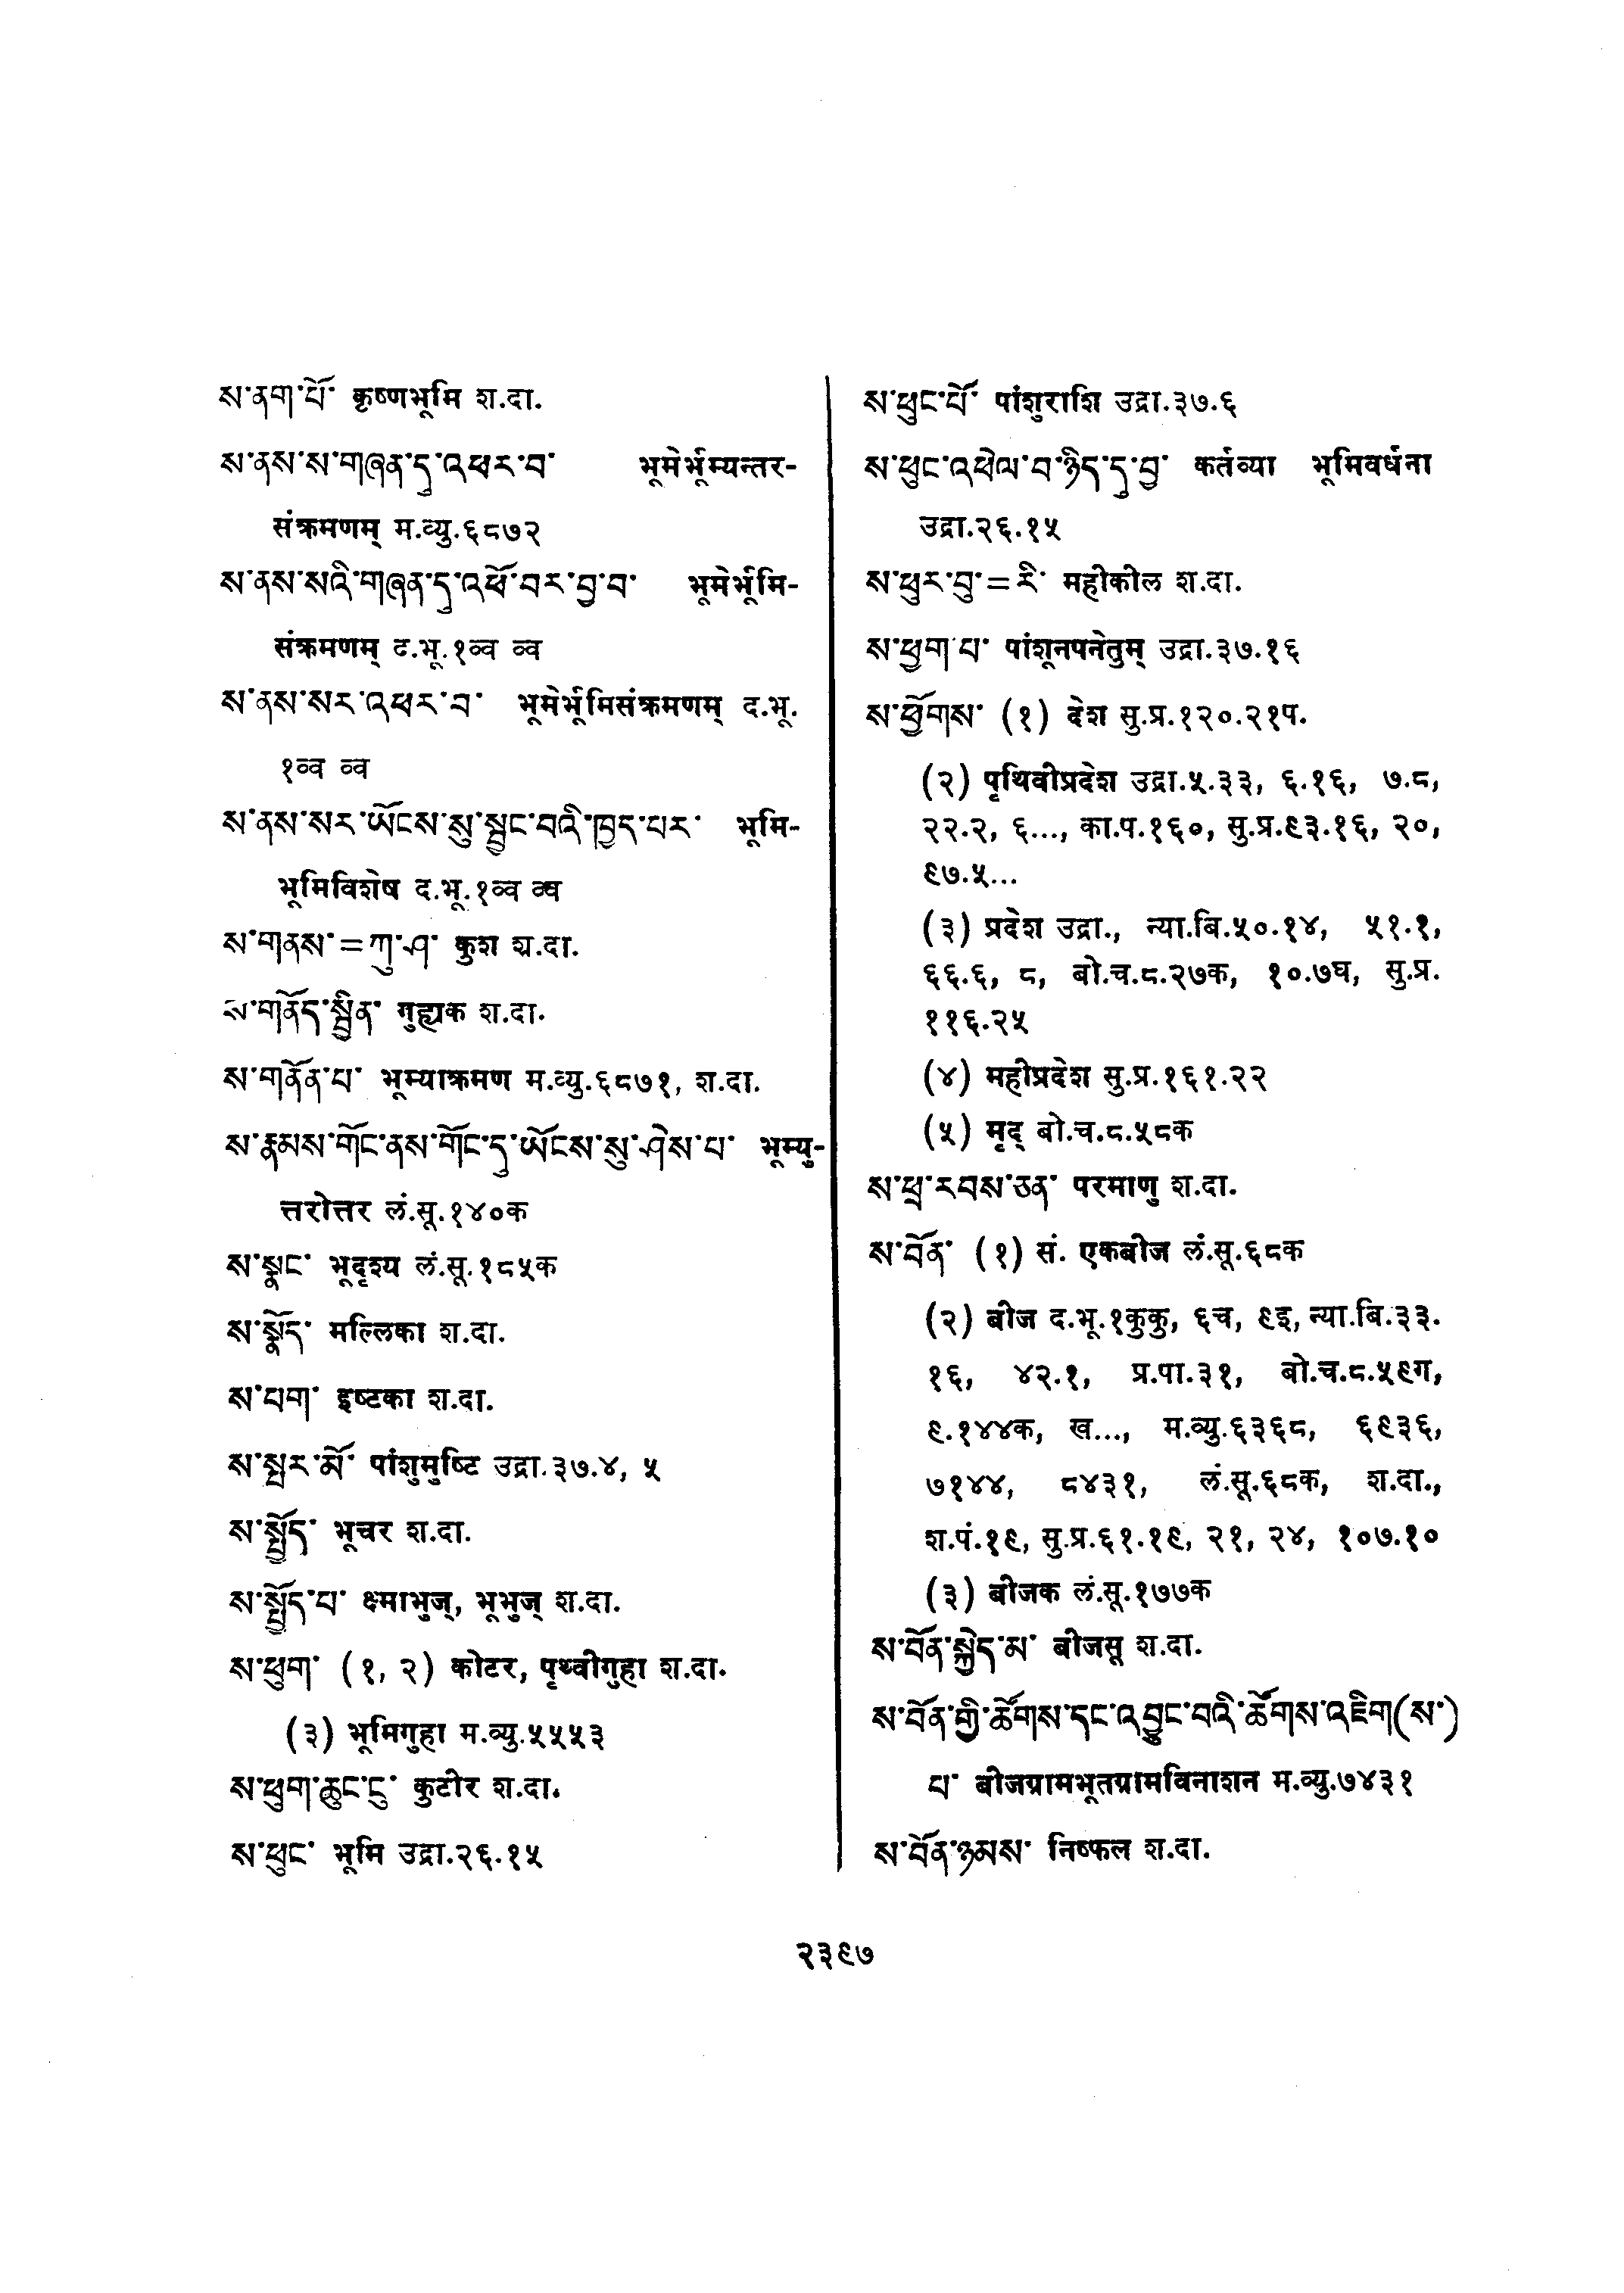 ས་ནག་པོ་ कृष्णभूमि श.दा.
ས་ནས་ས་གཞན་དུ་འཕར་བ་ भूमेर्भूम्यन्तर-
संक्रमणम् म.व्यु.६८७२
ས་ནས་སའི་གཞན་དུ་འཕོ་བར་བྱ་བ་ भूमेर्भूमि-
संक्रमणम् द.भू.१व्व व्व
ས་ནས་སར་འཕར་བ་ भूमेर्भूमिसंक्रमणम् द.भू.
१व्व व्व
ས་ནས་སར་ཡོངས་སུ་སྦྱང་བའི་ཁྱད་པར་ भूमि-
भूमिविशेष द.भू.१व्व व्व
ས་གནས་=ཀུ་ཤ་ कुश श.दा.
ས་གནོད་སྦྱིན་ गुह्यक श.दा.
ས་གནོན་པ་ भूम्याक्रमण म.व्यु.६८७१, श.दा.
ས་རྣམས་གོང་ནས་གོང་དུ་ཡོངས་སུ་ཤེས་པ་ भूम्यु-
त्तरोत्तर लं.सू.१४०क
ས་སྣང་ भूदृश्य लं.सू.१८५क
ས་སྣོད་ मल्लिका श.दा.
ས་པག་ इष्टका श.दा.
ས་སྤར་མོ་ पांशुमुष्टि उद्रा.३७.४, ५
ས་སྤྱོད་ भूचर श.दा.
ས་སྤྱོད་པ་ क्ष्माभुज्, भूभुज् श.दा.
ས་ཕུག་ (१, २) कोटर, पृथ्वीगुहा श.दा.
(३) भूमिगुहा म.व्यु.५५५३
ས་ཕུག་ཆུང་ངུ་ कुटीर श.दा.
ས་ཕུང་ भूमि उद्रा.२६.१५
ས་ཕུང་པོ་ पांशुराशि उद्रा.३७.६
ས་ཕུང་འཕེལ་བ་ཉིད་དུ་བྱ་ कर्तव्या भूमिवर्धना
उद्रा.२६.१५
ས་ཕུར་བུ་=རི་ महीकील श.दा.
ས་ཕྱག་པ་ पांशूनपनेतुम् उद्रा.३७.१६
ས་ཕྱོགས་ (१) देश सु.प्र.१२०.२१प.
(२) पृथिवीप्रदेश उद्रा.५.३३, ६.१६, ७.८,
२२.२, ६..., का.प.१६०, सु.प्र.९३.१६, २०,
९७.५...
(३) प्रदेश उद्रा., न्या.बि.५०.१४, ५१.१,
६६.६, ८, बो.च.८.२७क, १०.७घ, सु.प्र.
११६.२५
(४) महीप्रदेश सु.प्र.१६१.२२
(५) मृद् बो.च.८.५८क
ས་ཕྲ་རབས་ཅན་ परमाणु श.दा.
ས་བོན་ (१) सं. एकबीज लं.सू.६८क
(२) बीज द.भू.१कुकु, ६च, ९इ, न्या.बि.३३.
१६, ४२.१, प्र.पा.३१, बो.च.८.५९ग,
९.१४४क, ख..., म.व्यु.६३६८, ६९३६,
७१४४, ८४३१, लं.सू.६८क, श.दा.,
श.पं.१९, सु.प्र.६१.१९, २१, २४, १०७.१०
(३) बीजक लं.सू.१७७क
ས་བོན་སྐྱེད་མ་ बीजसू श.दा.
ས་བོན་གྱི་ཚོགས་དང་འབྱུང་བའི་ཚོགས་འཇིག(ས་)
པ་ बीजग्रामभूतग्रामविनाशन म.व्यु.७४३१
ས་བོན་ཉམས་ निष्फल श.दा.
२३९७